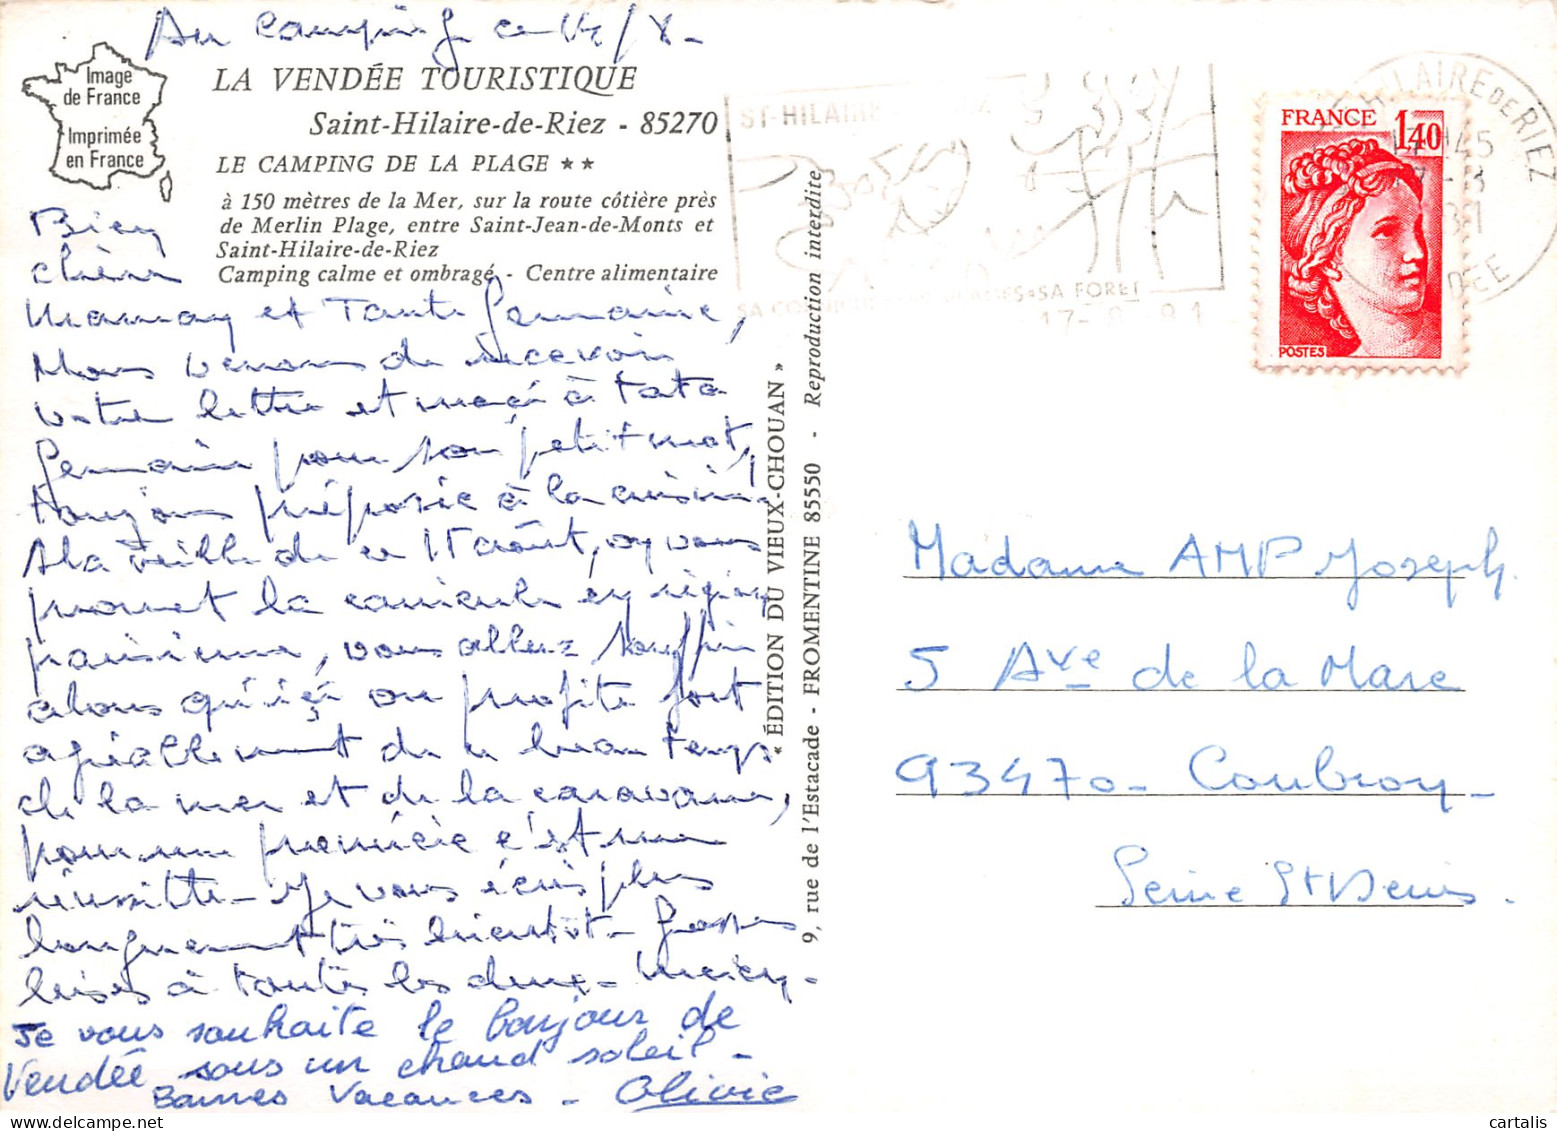 Au camping ce 14/8-
Image
de France
Imprimée
en France
LA VENDÉE TOURISTIQUE
Saint-Hilaire-de-Riez - 85270
LE CAMPING DE LA PLAGE ★★
à 150 mètres de la Mer, sur la route côtière près
de Merlin Plage, entre Saint-Jean-de-Monts et
Saint-Hilaire-de-Riez
Camping calme et ombragé - Centre alimentaire
Bien
chère
Maman et Tante Germaine,
Nous venons de recevoir
votre lettre et merci à tata
Germaine pour son petit mot,
toujours préposée à la cuisine,
A la veille de ce 15 août, on vous
promet la canicule en région
parisienne, vous allez souffrir
alors qu'ici on profite fort
agréablement de ce beau temps
de la mer et de la caravane,
pour une première c'est une
réussite - Je vous écris plus
longuement très bientôt - Grosses
bises à toutes les deux -
Je vous souhaite le bonjour de
Vendée sous un chaud soleil -
Bonnes Vacances - Olivie
« ÉDITION DU VIEUX-CHOUAN »
9, rue de l'Estacade - FROMENTINE 85550 - Reproduction interdite
ST-HILAIRE
SA FORET
17-8-81
ST HILAIRE DE RIEZ
17H45
17-8
VENDEE
FRANCE 1,40
POSTES
Madame AMP Joseph.
5 Ave de la Mare
93470 - Coubron -
Seine St Denis.
cartalis